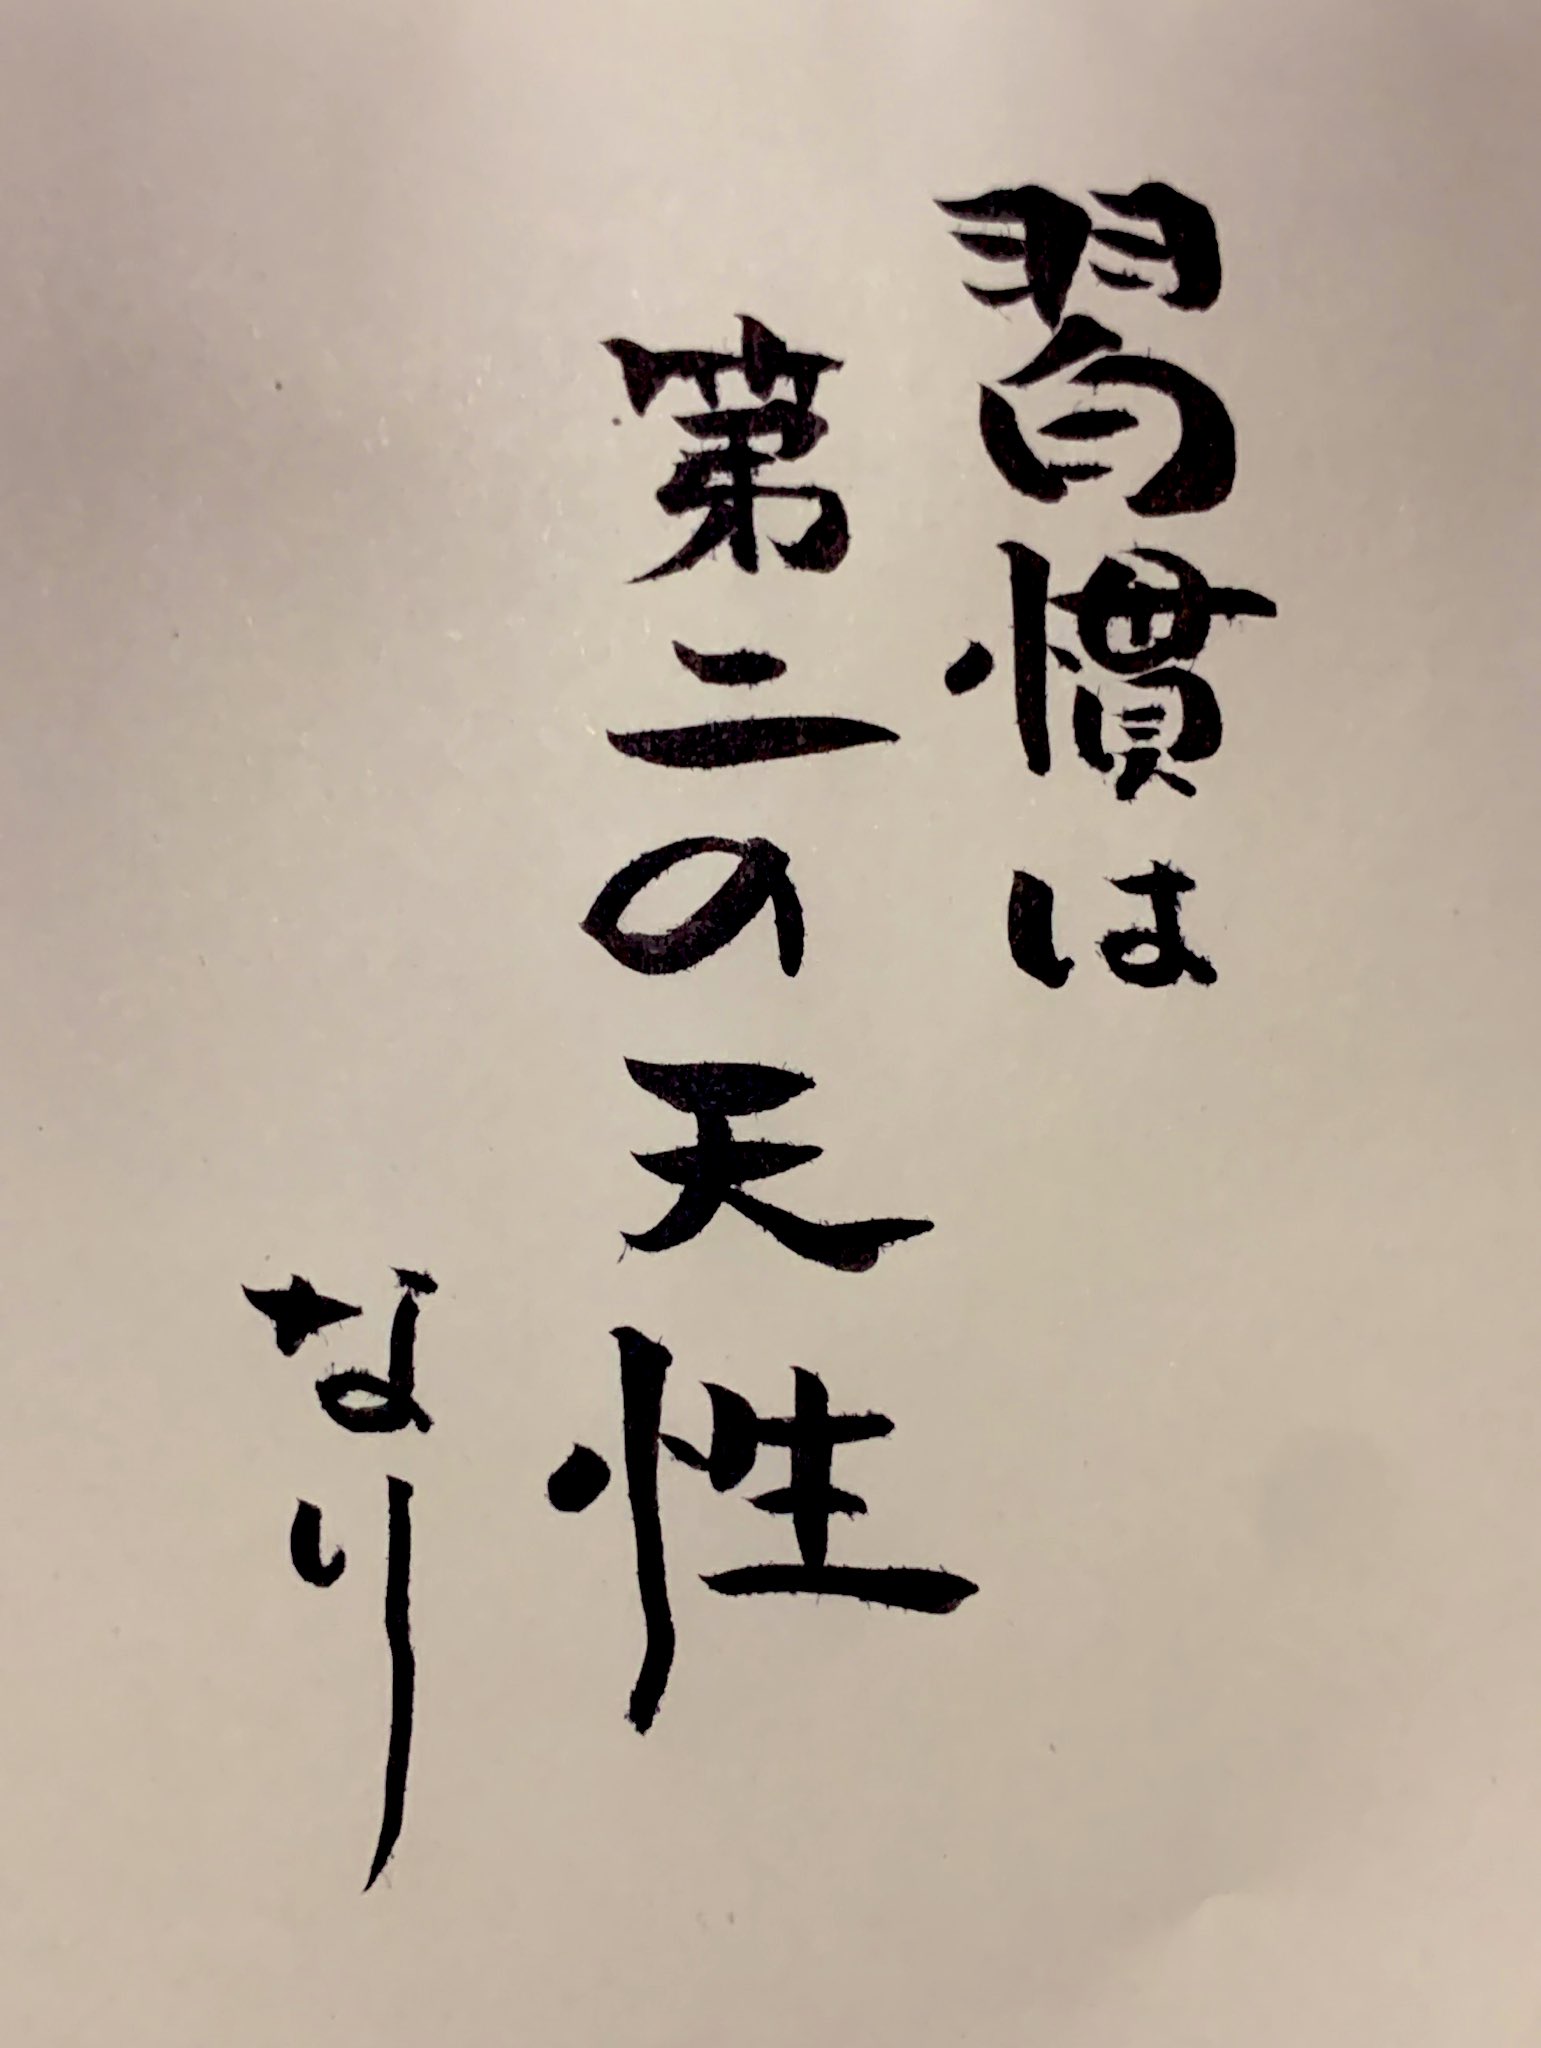 習慣は
第二の天性
なり